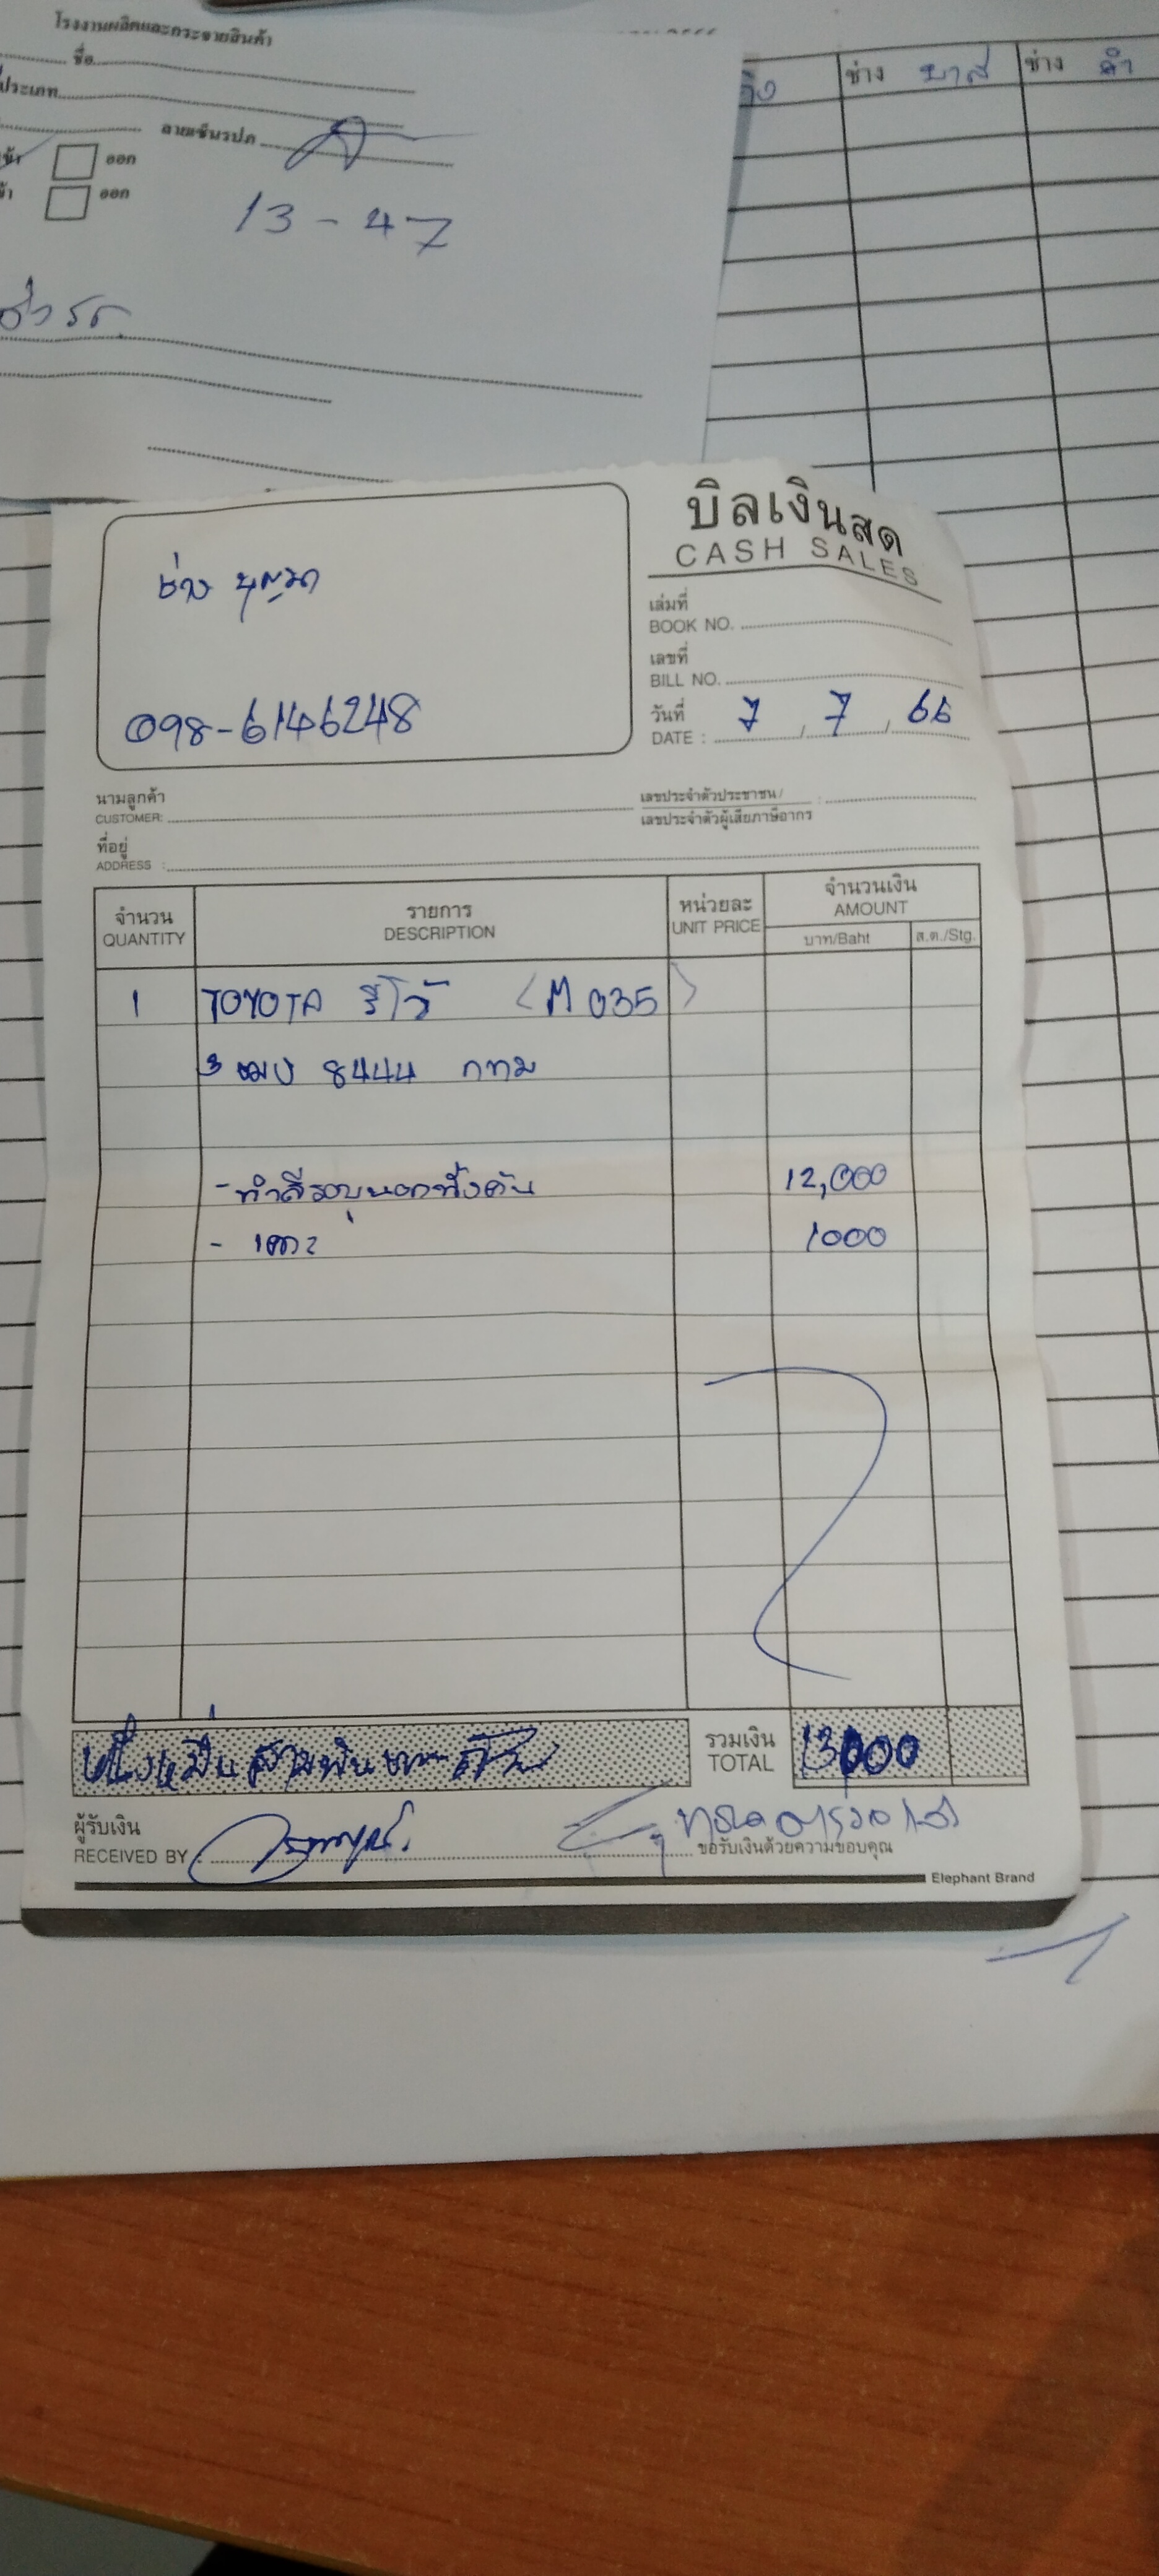 โรงงานผลิตและกระจายสินค้า
ชื่อ
ประเภท
ลายเซ็นรปภ
ออก
ออก
13-47
ช่าง บาส ช่าง ดำ
บิลเงินสด
CASH SALES
ช่าง
098-6146248
เล่มที่
BOOK NO.
เลขที่
BILL NO.
วันที่
DATE : 7 / 7 / 66
นามลูกค้า
CUSTOMER:
เลขประจำตัวประชาชน/
เลขประจำตัวผู้เสียภาษีอากร :
ที่อยู่
ADDRESS :
จำนวน
QUANTITY
รายการ
DESCRIPTION
หน่วยละ
UNIT PRICE
จำนวนเงิน
AMOUNT
บาท/Baht
ส.ต./Stg.
1 TOYOTA รีโว้ (M 035)
8444 กทม
- ทำสีรอบนอกทั้งคัน 12,000
- เคาะ 1000
หนึ่งหมื่นสามพันบาทถ้วน
รวมเงิน
TOTAL
13000
ผู้รับเงิน
RECEIVED BY
ขอรับเงินด้วยความขอบคุณ
Elephant Brand